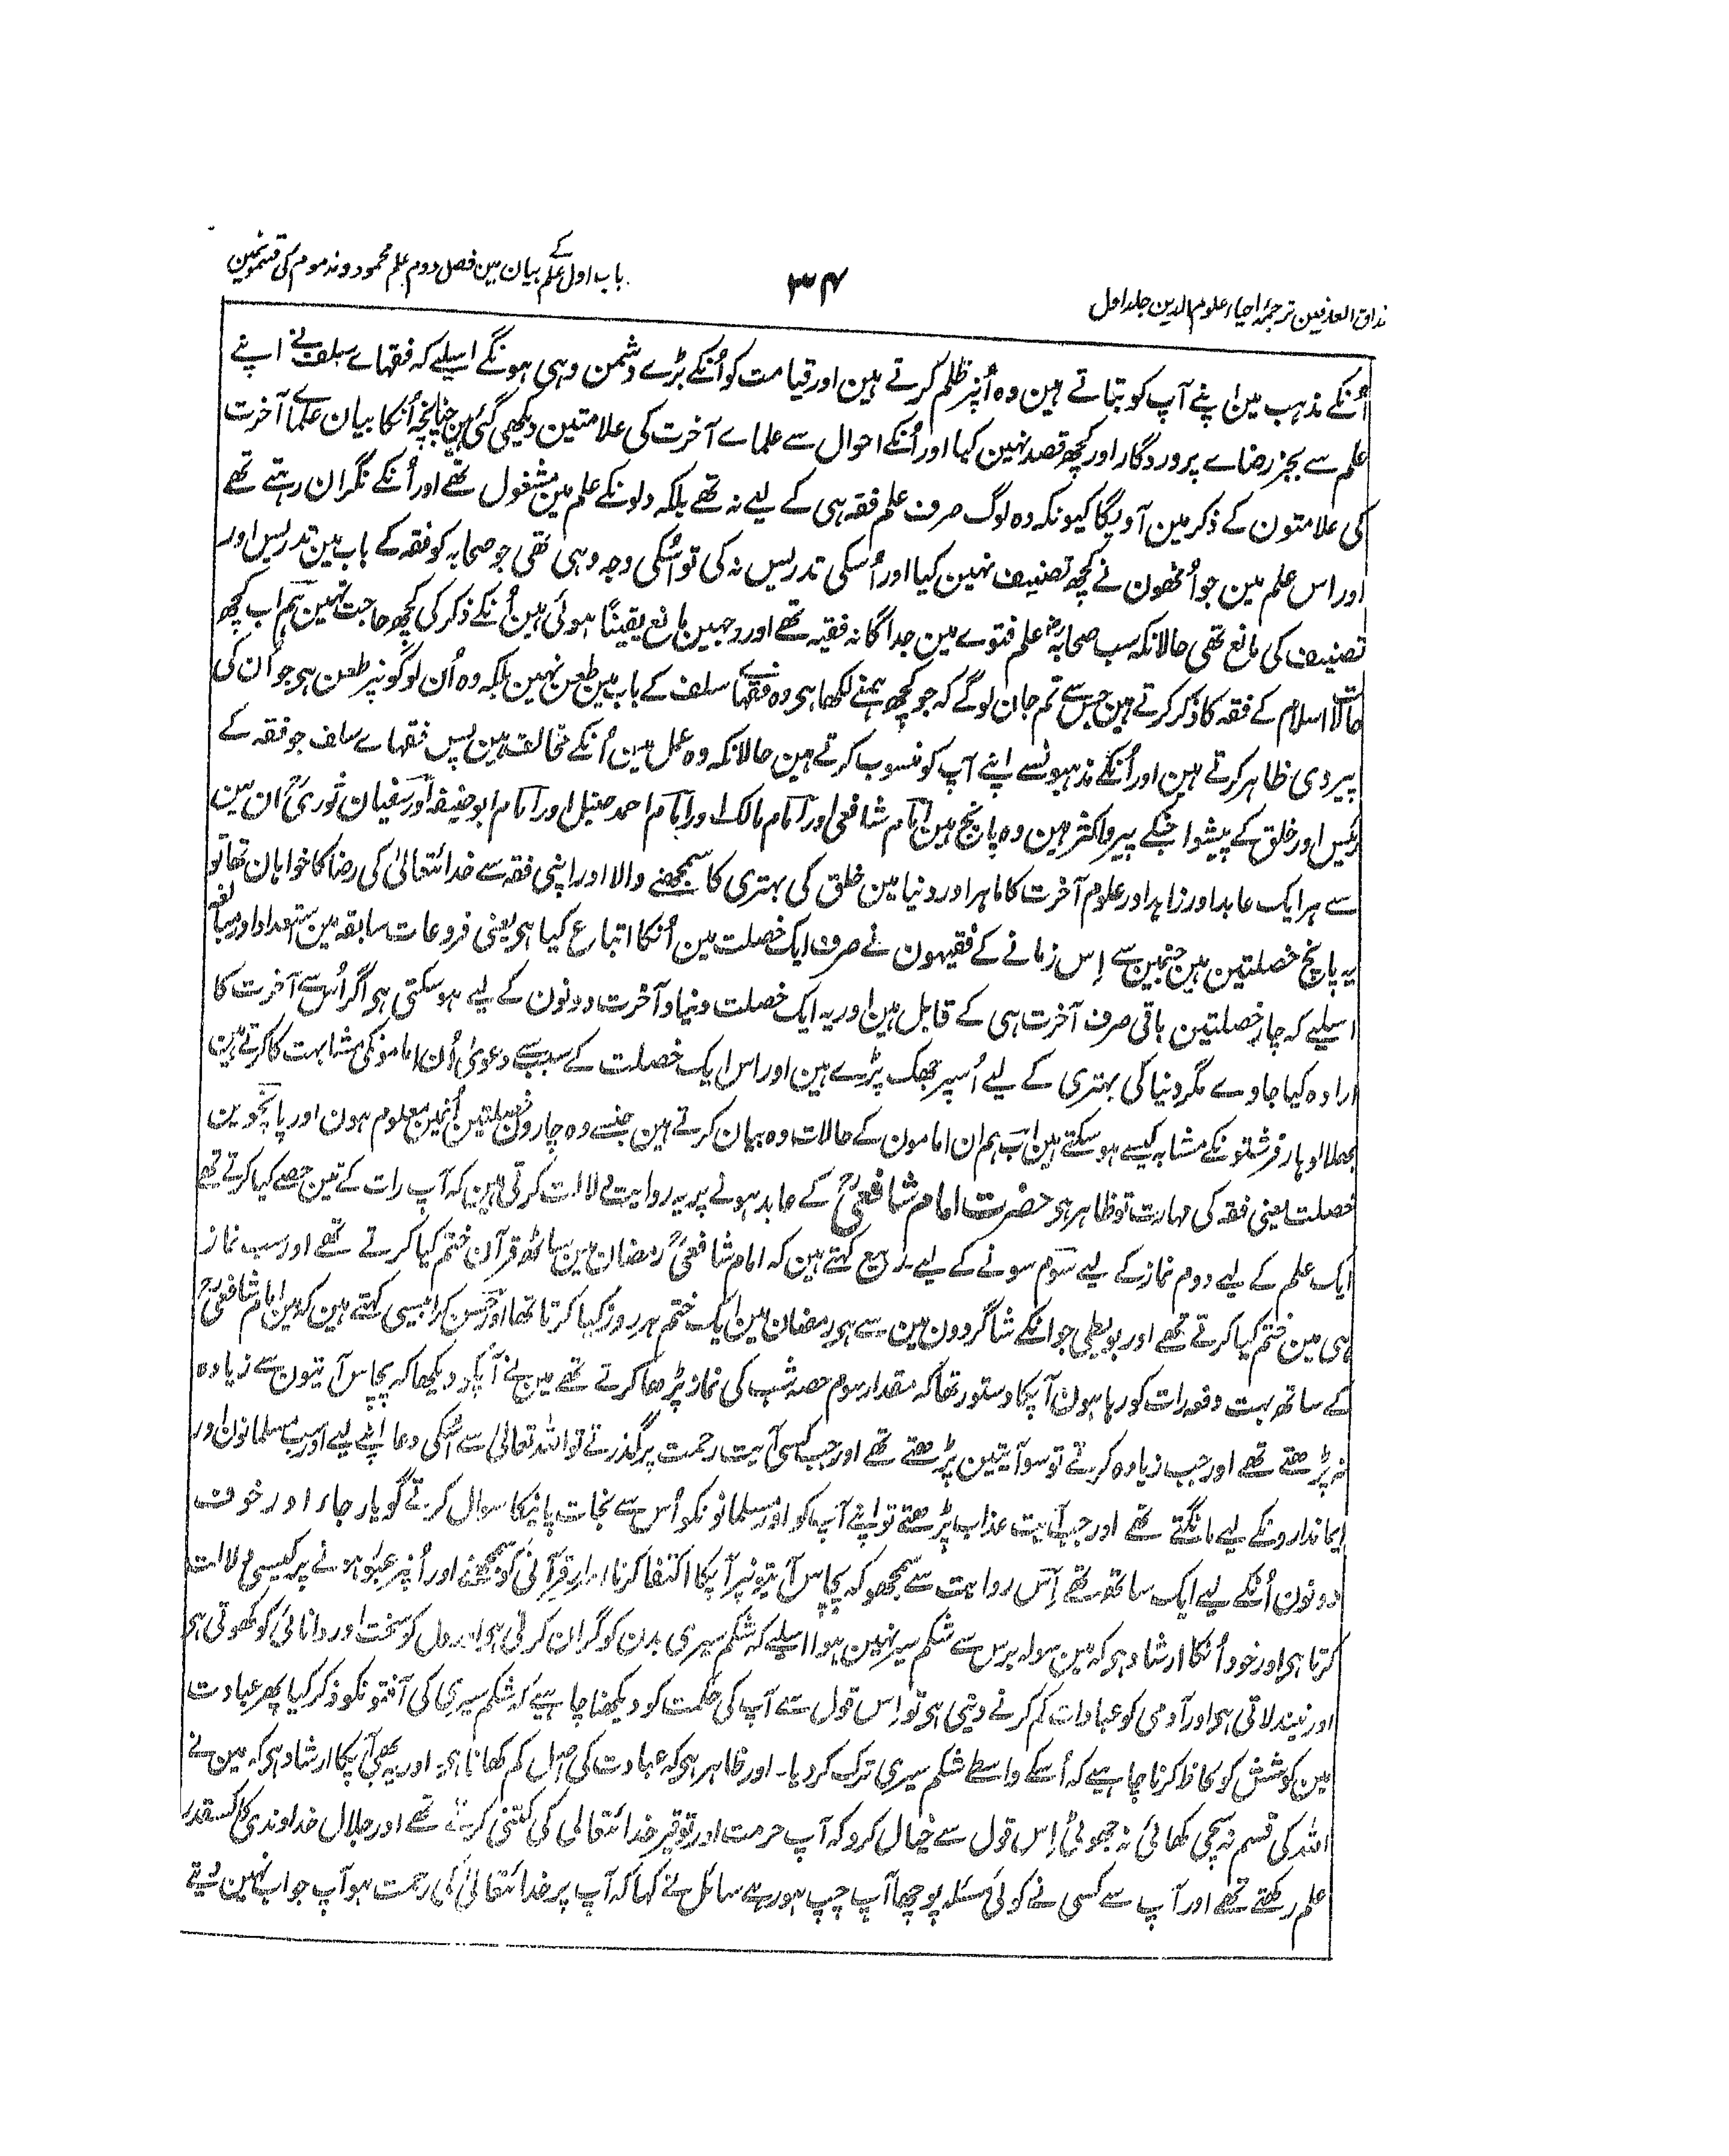 مذاق العارفین ترجمۂ احیاء علوم الدین جلد اول
۳۴
باب اول علم کے بیان مین فصل دوم علم محمود و مذموم کی قسمونمین
اُنکے مذہب مین اپنے آپ کو بتاتے ہین وہ اُنپر ظلم کرتے ہین اور قیامت کو اُنکے بڑے دشمن وہی ہونگے اسلیے کہ فقہاے سلف نے اپنے
علم سے بجز رضاے پروردگار اور کچھ قصد نہین کیا اور اُنکے احوال سے علماے آخرت کی علامتین دیکھی گئی ہین چنانچہ اُنکا بیان علماے آخرت
کی علامتون کے ذکر مین آویگا کیونکہ وہ لوگ صرف علم فقہ ہی کے لیے نہ تھے بلکہ دلونکے علم مین مشغول تھے اور اُنکے نگران رہتے تھے
اور اس علم مین جو اُنھون نے کچھ تصنیف نہین کیا اور اُسکی تدریس نہ کی تو اُسکی وجہ وہی تھی جو صحابہ کو فقہ کے باب مین تدریس اور
تصنیف کی مانع تھی حالانکہ سب صحابہؓ علم فتوے مین جداگانہ فقیہ تھے اور وجہین مانع یقیناً ہوئی ہین اُنکے ذکر کی کچھ حاجت نہین ہم اب کچھ
حالات اسلام کے فقہ کا ذکر کرتے ہین جس سے تم جان لوگے کہ جو کچھ ہمنے لکھا ہی وہ فقہاے سلف کے باب مین طعن نہین بلکہ وہ اُن لوگونپر طعن ہی جو اُن کی
پیروی ظاہر کرتے ہین اور اُنکے مذہبونسے اپنے آپ کو منسوب کرتے ہین حالانکہ وہ عمل مین اُنکے مخالف ہین پس فقہاے سلف جو فقہ کے
رئیس اور خلق کے پیشوا جنکے پیرو اکثر ہین وہ پانچ ہین امام شافعی اور امام مالک اور امام احمد حنبل اور امام ابو حنیفہ اور سفیان ثوریؒ ان مین
سے ہر ایک عابد اور زاہد اور علوم آخرت کا ماہر اور دنیا مین خلق کی بہتری کا سمجھنے والا اور اپنی فقہ سے خدائتعالیٰ کی رضا کا خواہان تھا تو
یہ پانچ خصلتین ہین جنمین سے اِس زمانے کے فقیہون نے صرف ایک خصلت مین اُنکا اتباع کیا ہی یعنی فروعات سابقہ مین استعداد اور مبالغہ
اسلیے کہ چار خصلتین باقی صرف آخرت ہی کے قابل ہین اور یہ ایک خصلت دنیا و آخرت دونون کے لیے ہو سکتی ہی اگر اُس سے آخرت کا
ارادہ کیا جاوے مگر دنیا کی بہتری کے لیے اُسپر جھک پڑے ہین اور اس ایک خصلت کے سبب سے دعویٰ اُن امامونکی مشابہت کا کرتے ہین
بھلا لوہار فرشتونکے مشابہ کیسے ہو سکتے ہین اب ہم ان امامون کے حالات وہ بیان کرتے ہین جنسے وہ چارون خصلتین اُنمین معلوم ہون اور پانچوین
خصلت یعنی فقہ کی مہارت تو ظاہر ہی حضرت امام شافعیؒ کے عابد ہونے پر یہ روایت دلالت کرتی ہین کہ آپ رات کے تین حصے کیا کرتے تھے
ایک علم کے لیے دوم نماز کے لیے سوم سونے کے لیے ربیع کہتے ہین کہ امام شافعیؒ رمضان مین ساٹھ قرآن ختم کیا کرتے تھے اور سب نماز
ہی مین ختم کیا کرتے تھے اور بویطی جو انکے شاگردون مین سے ہی رمضان مین ایک ختم ہر روز کیا کرتا تھا اور حسن کرابیسی کہتے ہین کہ مین امام شافعیؒ
کے ساتھ بہت دفعہ رات کو رہا ہون آپکا دستور تھا کہ مقدار سوم حصہ شب کی نماز پڑھا کرتے تھے مین نے آپکو دیکھا کہ پچاس آیتون سے زیادہ
نہ پڑھتے تھے اور جب زیادہ کرتے تو سو آیتین پڑھتے تھے اور جب کسی آیت رحمت پر گذرتے تو اللہ تعالیٰ سے اُسکی دعا اپنے لیے اور سب مسلمانون اور
ایماندارونکے لیے مانگتے تھے اور جب آیت عذاب پڑھتے تو اپنے آپ کو اور مسلمانونکو اُس سے نجات پانیکا سوال کرتے گویا رجاء اور خوف
دونون اُنکے لیے ایک ساتھ تھے اِس روایت سے سمجھو کہ پچاس آیتونپر آپکا اکتفا کرنا اسرار قرآنی کو سمجھنے اور اُنپر عبور ہونے پر کیسی دلالت
کرتا ہی اور خود اُنکا ارشاد ہی کہ مین سولہ برس سے شکم سیر نہین ہوا اسلیے کہ شکم سیری بدن کو گران کرتی ہی اور دل کو سخت اور دانائی کو کھوتی ہی
اور نیند لاتی ہی اور آدمی کو عبادات کم کرنے دیتی ہی تو اِس قول سے آپ کی حکمت کو دیکھنا چاہیے کہ شکم سیری کی آفتونکو ذکر کیا پھر عبادت
مین کوشش کو لحاظ کرنا چاہیے کہ اُسکے واسطے شکم سیری ترک کر دیا۔ اور ظاہر ہی کہ عبادت کی اصل کم کھانا ہی۔ اور یہ بھی آپکا ارشاد ہی کہ مین نے
اللہ کی قسم نہ سچی کھائی نہ جھوٹی اِس قول سے خیال کرو کہ آپ حرمت اور توقیر خدائتعالیٰ کی کتنی کرتے تھے اور جلال خداوندی کا کسقدر
علم رکھتے تھے اور آپ سے کسی نے کوئی مسئلہ پوچھا آپ چپ ہو رہے سائل نے کہا کہ آپ پر خدائتعالیٰ کی رحمت ہو آپ جواب نہین دیتے